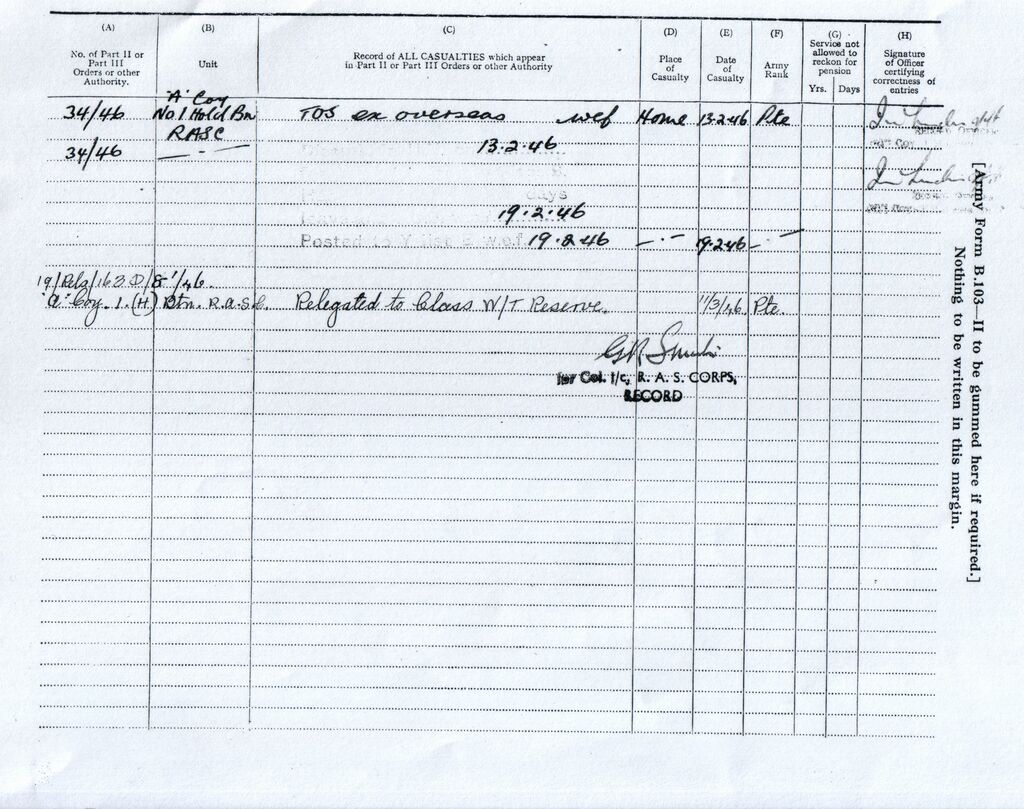 (A) (B) (C) (D) (E) (F) (G) (H)
No. of Part II or Part III Orders or other Authority.
Unit
Record of ALL CASUALTIES which appear in Part II or Part III Orders or other Authority
Place of Casualty
Date of Casualty
Army Rank
Service not allowed to reckon for pension
Yrs. Days
Signature of Officer certifying correctness of entries
"A" Coy
34/46 No 1 Hold Bn TOS ex overseas wef Home 13.2.46 Pte
RASC
34/46 — · — 13.2.46
days
19.2.46
Posted to Y w.e.f 19.2.46 — · — 19.2.46 — · —
"A" Coy. 1. (H) Btn. R.A.S.C. Relegated to Class W/T Reserve. 11/3/46 Pte.
for Col. I/c, R. A. S. CORPS,
RECORD
[Army Form B.103—II to be gummed here if required.]
Nothing to be written in this margin.